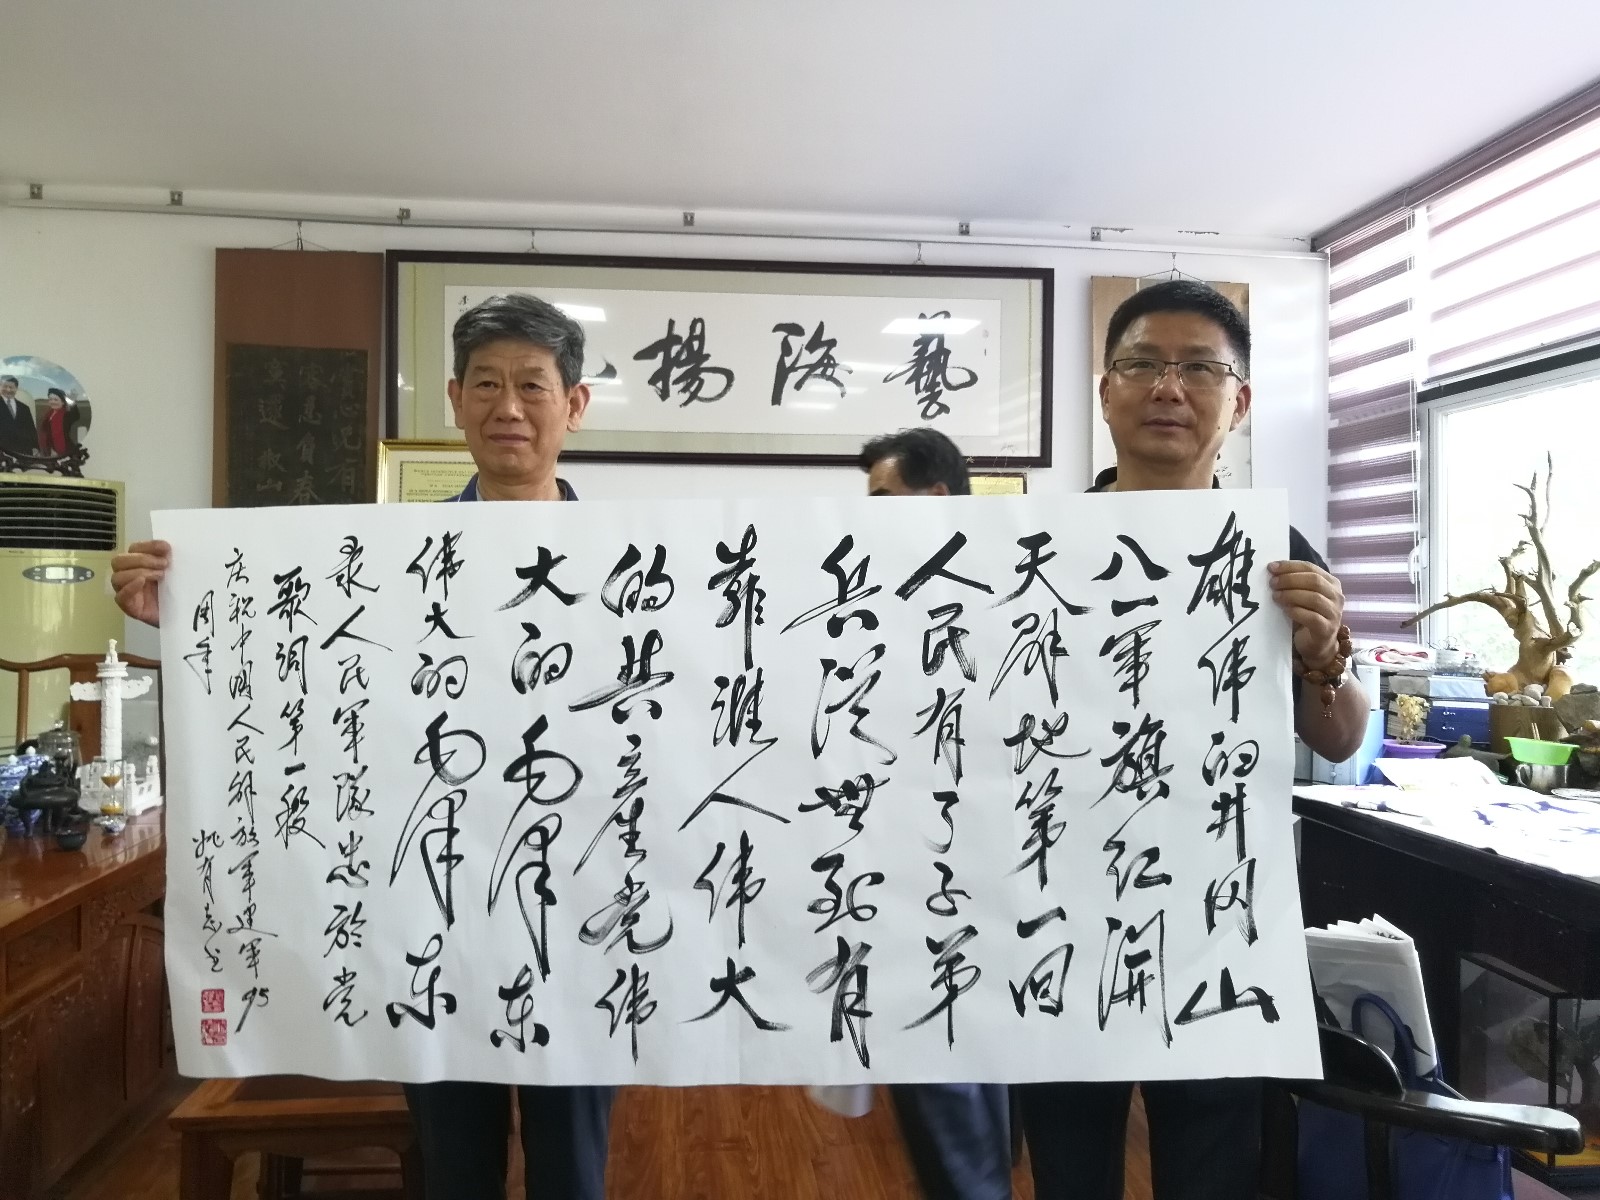 藝海揚
雄伟的井冈山
八一軍旗红開
天辟地第一回
人民有了子弟
兵從無到有
靠谁人伟大
的共產党伟
大的毛泽东
伟大的毛泽东
录人民軍隊忠於党
歌词第一段
庆祝中国人民解放军建军95
周年 姚有志书